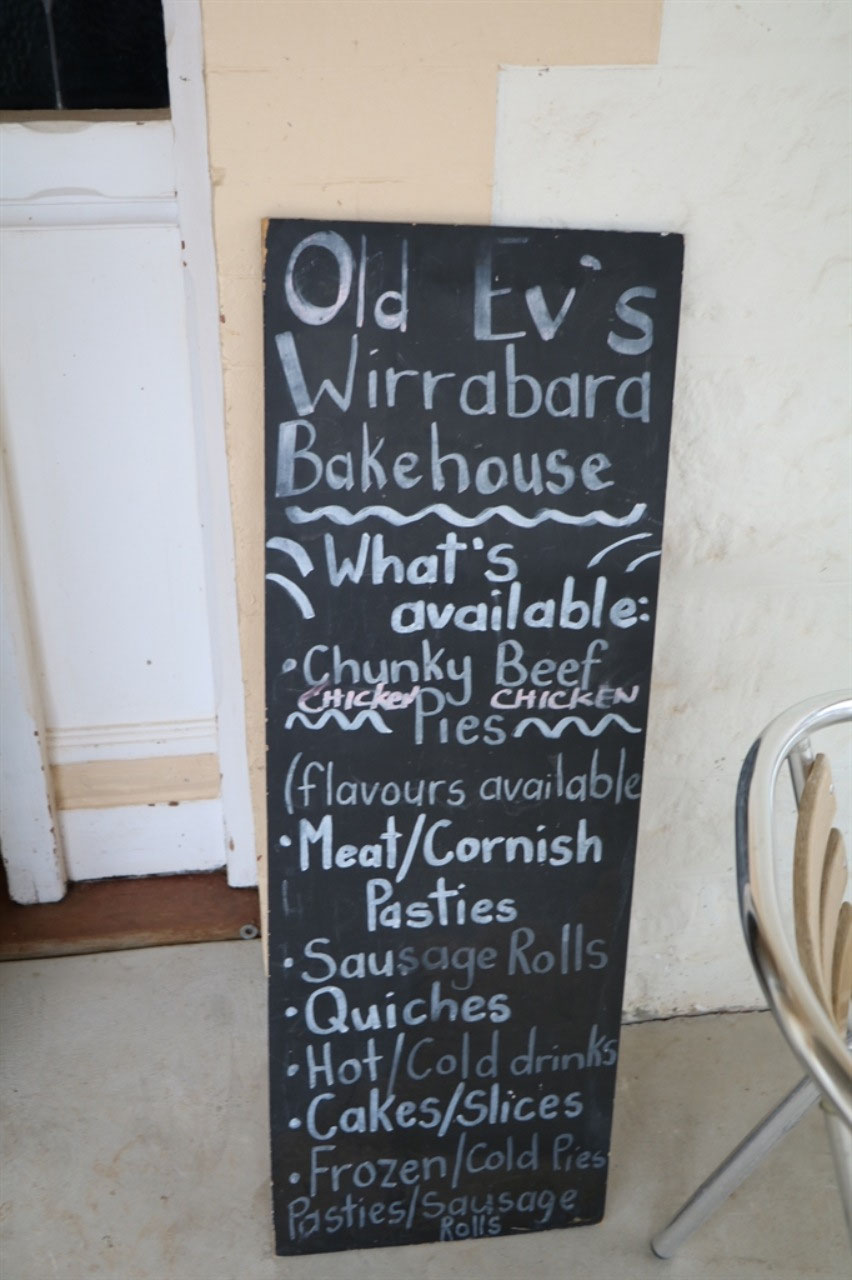 Old Ev's
Wirrabara
Bakehouse
What's
available:
•Chunky Beef
CHICKEN Pies CHICKEN
(flavours available
•Meat/Cornish
Pasties
•Sausage Rolls
•Quiches
•Hot/Cold drinks
•Cakes/Slices
•Frozen/Cold Pies
Pasties/Sausage
Rolls